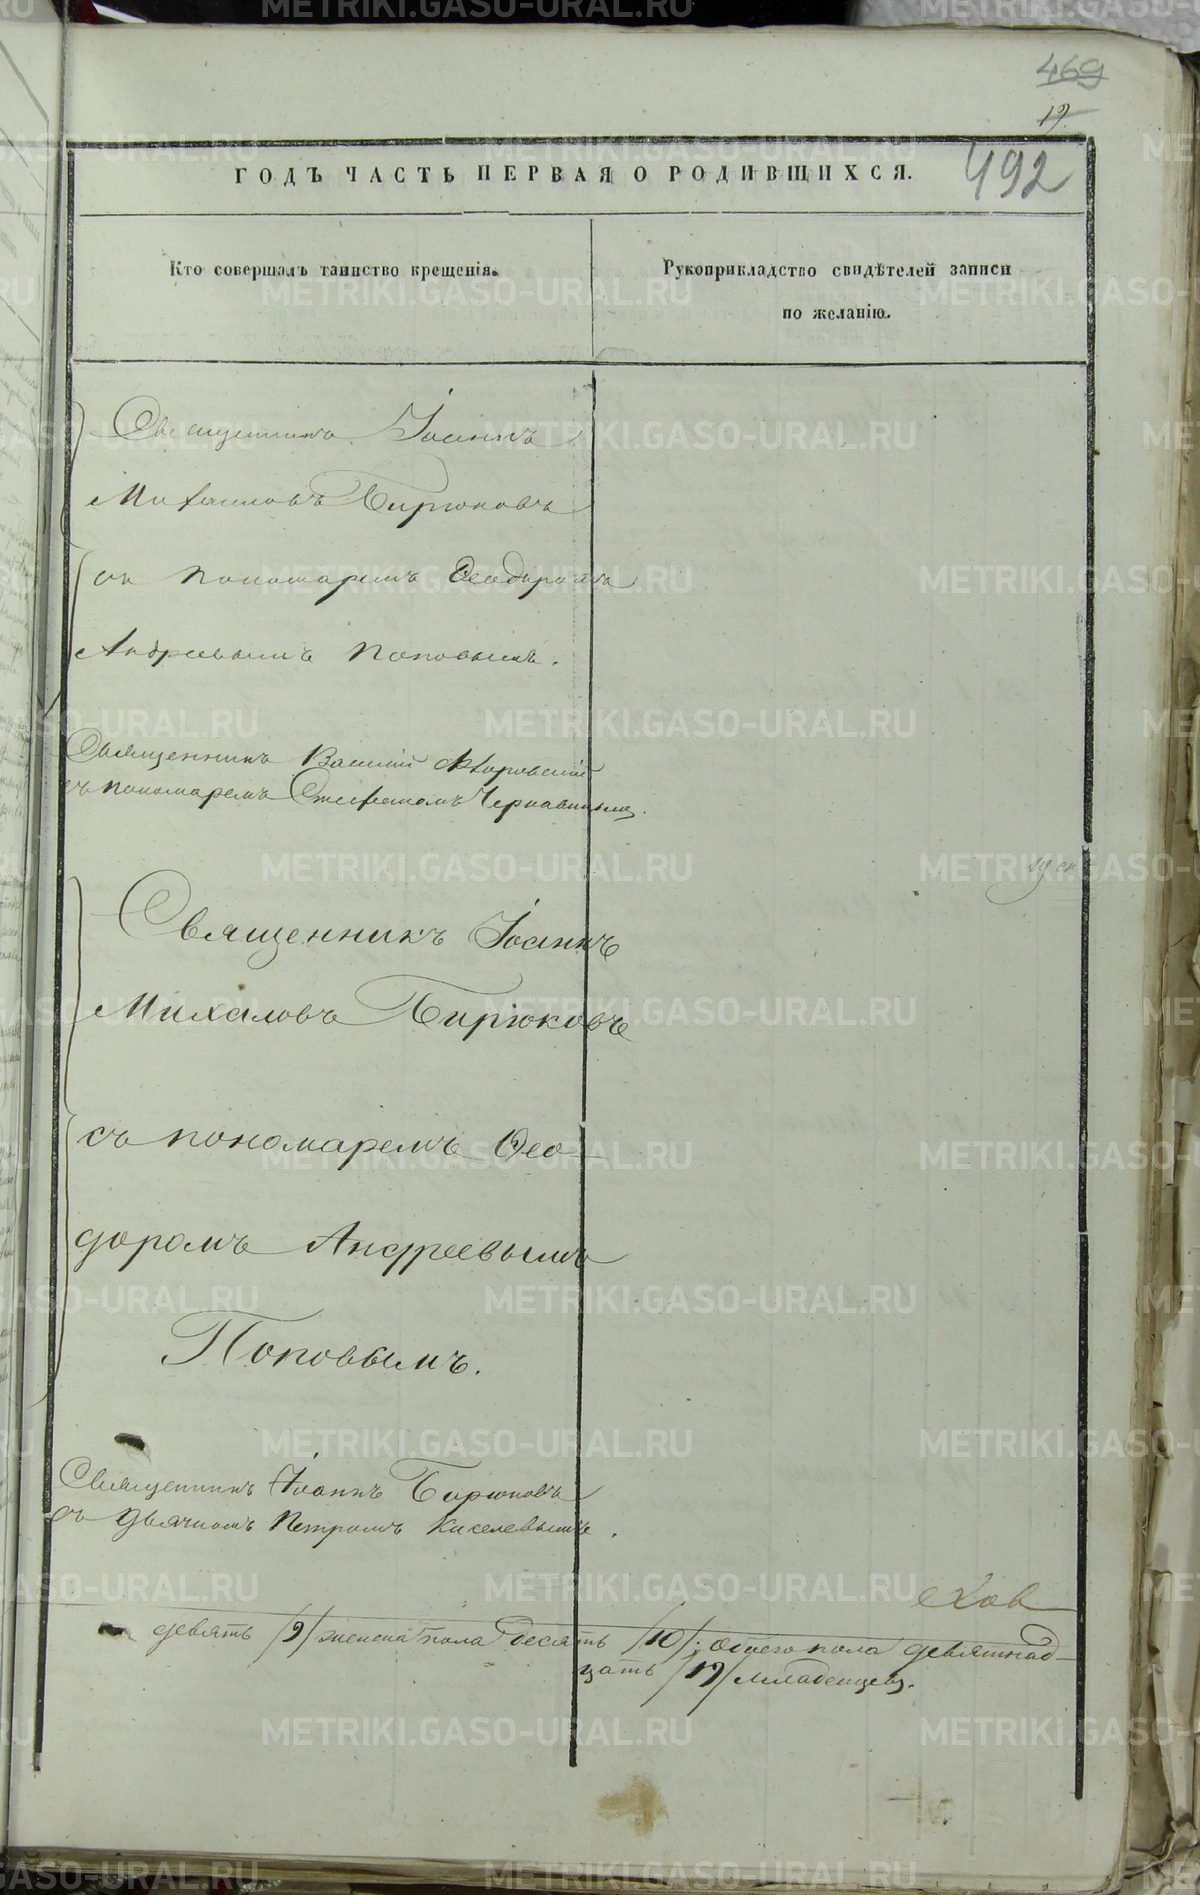 469
19.
492
ГОДЪ ЧАСТЬ ПЕРВАЯ О РОДИВШИХСЯ.
Кто совершалъ таинство крещенія.
Рукоприкладство свидѣтелей записи
по желанію.
Священникъ Іоаннъ
Михаиловъ Бирюковъ
съ пономаремъ Ѳеодоромъ
Андреевымъ Поповымъ.
Священникъ Василій
съ пономаремъ Стефаномъ Чернавинымъ.
Священникъ Іоаннъ
Михаловъ Бирюковъ
съ пономаремъ Ѳео-
доромъ Андреевымъ
Поповымъ.
Священникъ Іоаннъ Бирюковъ
съ дьячкомъ Петромъ Киселевымъ.
девять /9/ женска пола десять /10/; обоего пола девятнад-
цать /19/ младенцевъ.
METRIKI.GASO-URAL.RU